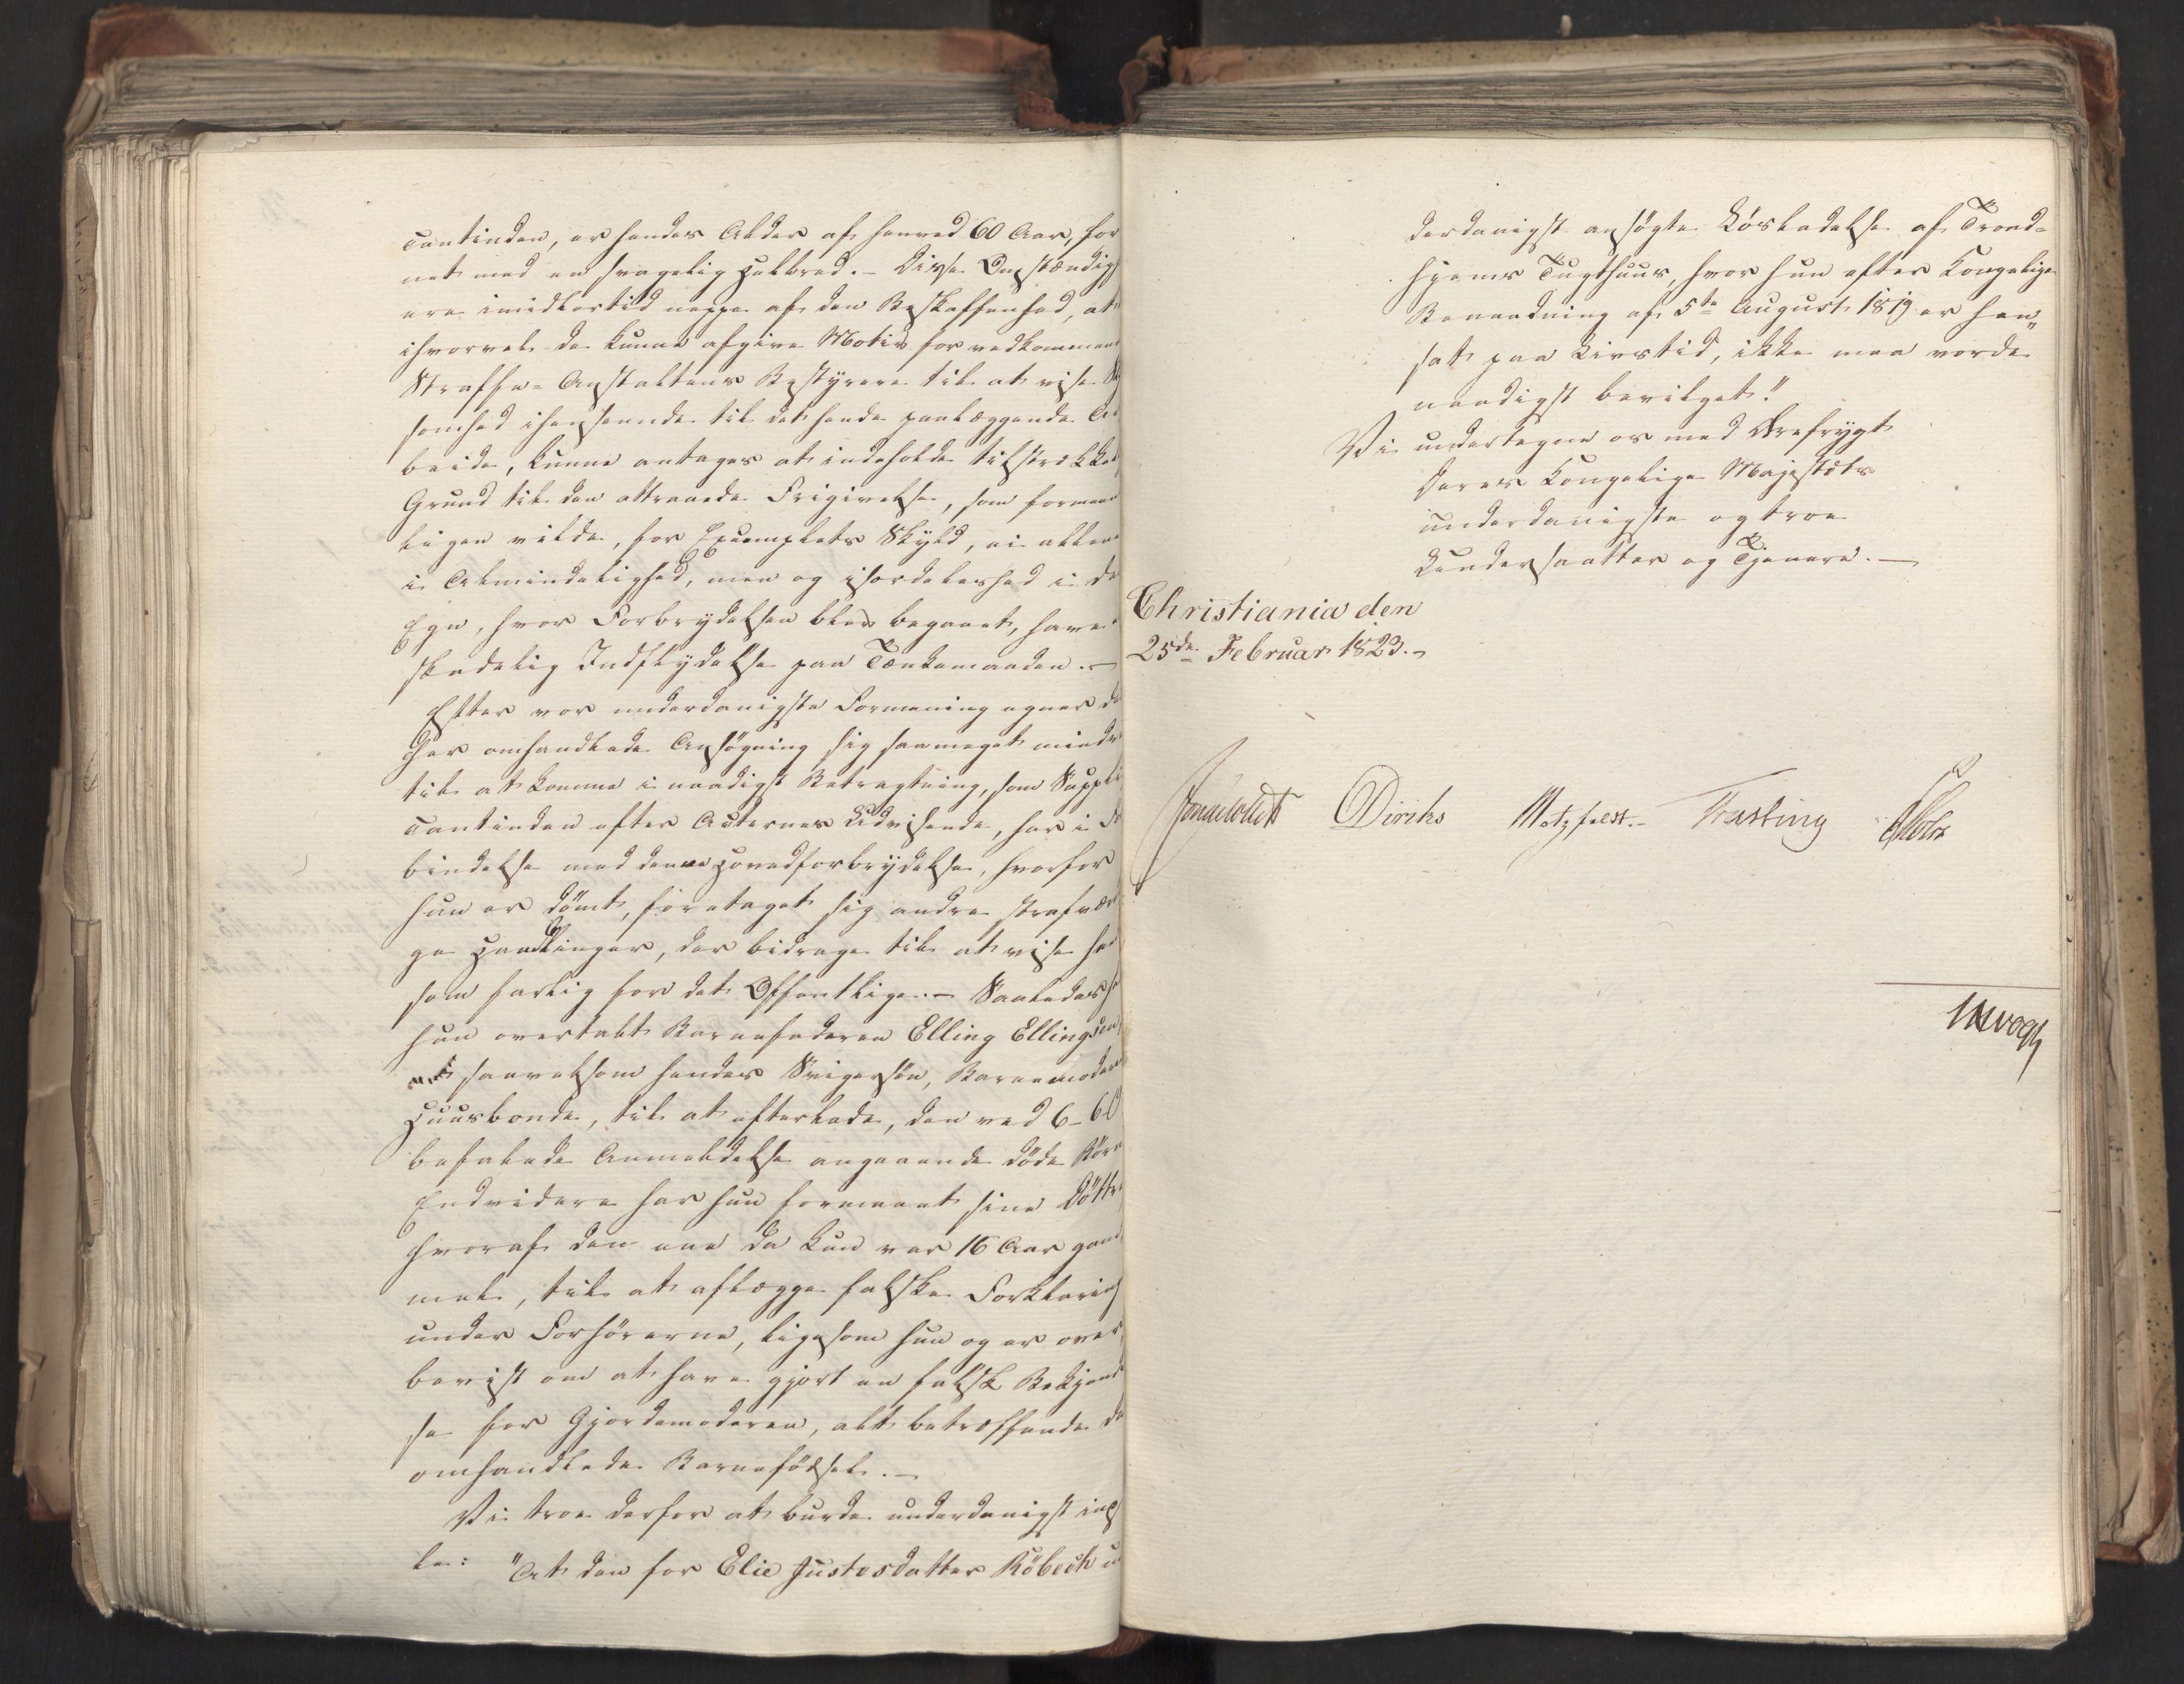 cantinden, er hendes Alder af henved 60 Aar, for
net med en svagelig Helbred. – Disse Omstændig
ere imidlertid neppe af den Beskaffenhed, at
ihvorvel de kunne afgive Motiv for vedkommen
Straffe-Anstaltens Bestyrere til at vise
somhed ihenseende til det hende paalæggende Ar
beide, kunne antages at indeholde tilstrækkel
Grund til den attraaede Frigivelse, som formeen
ligen vilde, for Exemplets Skyld, ei allene
i Almindelighed, men og isærdeleshed i de
Egn, hvor Forbrydelsen blev begaaet, have
skadelig Indflydelse paa Tænkemaaden. –
Efter vor underdanigste Formening egner de
her omhandlede Ansøgning sig saameget mindre
til at komme i naadigst Betragtning, som Suppli
cantinden efter Acternes Udvisende, har i For
bindelse med denne Hovedforbrydelse, hvorfor
hun er dømt, foretaget sig andre strafvær
ge Handlinger, der bidrage til at vise he
som farlig for det Offentlige. – Saaledes h
hun overtalt Barnefaderen Elling Ellingsen
saavelsom hendes Svigersøn, Barnemoderen
Huusbonde, til at efterlade, den ved 6–6
befalede Anmeldelse angaaende døde Bør
Endvidere har hun formaaet sine Døttre
hvoraf den ene da kun var 16 Aar gam
mel, til at aflægge falske Forklaring
under Forhørerne, ligesom hun og er over
beviist om at have gjort en falsk Bekjend
se for Gjordemoderen, alt betræffende de
omhandlede Barnefødsel. –
Vi troe derfor at burde underdanigst ind
le: "At den for Elie Justesdatter Röbech u
derdanigst ansøgte Løsladelse af Trond-
hjems Tugthuus, hvor hun efter Kongelige
Benaadning af 5te August 1819 er hen„
sat paa Livstid, ikke maa vorde
naadigst bevilget."
Vi undertegne os med Ærefrygt
Deres Kongelige Majestæts
underdanigste og troe
Undersaatter og Tjenere. –
Christiania den
25de Februar 1823. –
Sommerhielm Diriks Motzfeldt. – Fasting Holst
JHVogt